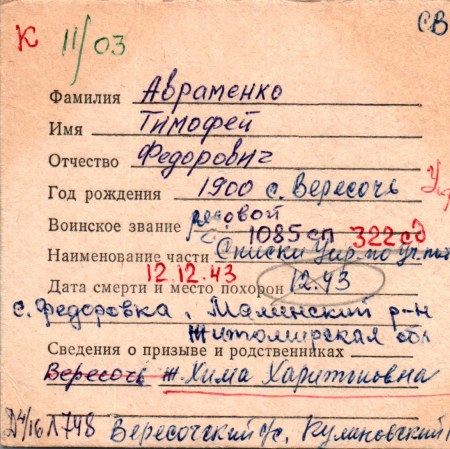 К 11/03 СВ
Фамилия Авраменко
Имя Тимофей
Отчество Федорович
Год рождения 1900 с. Вересочь
Воинское звание рядовой
1085 сп 322 сд
Наименование части Списки Упр. по уч.
12.12.43
Дата смерти и место похорон 12.43
с. Федоровка, Малинский р-н
Житомирская обл
Сведения о призыве и родственниках
Вересочь ж. Хима Харитоновна
Л748 Вересочский с/с, Куликовский